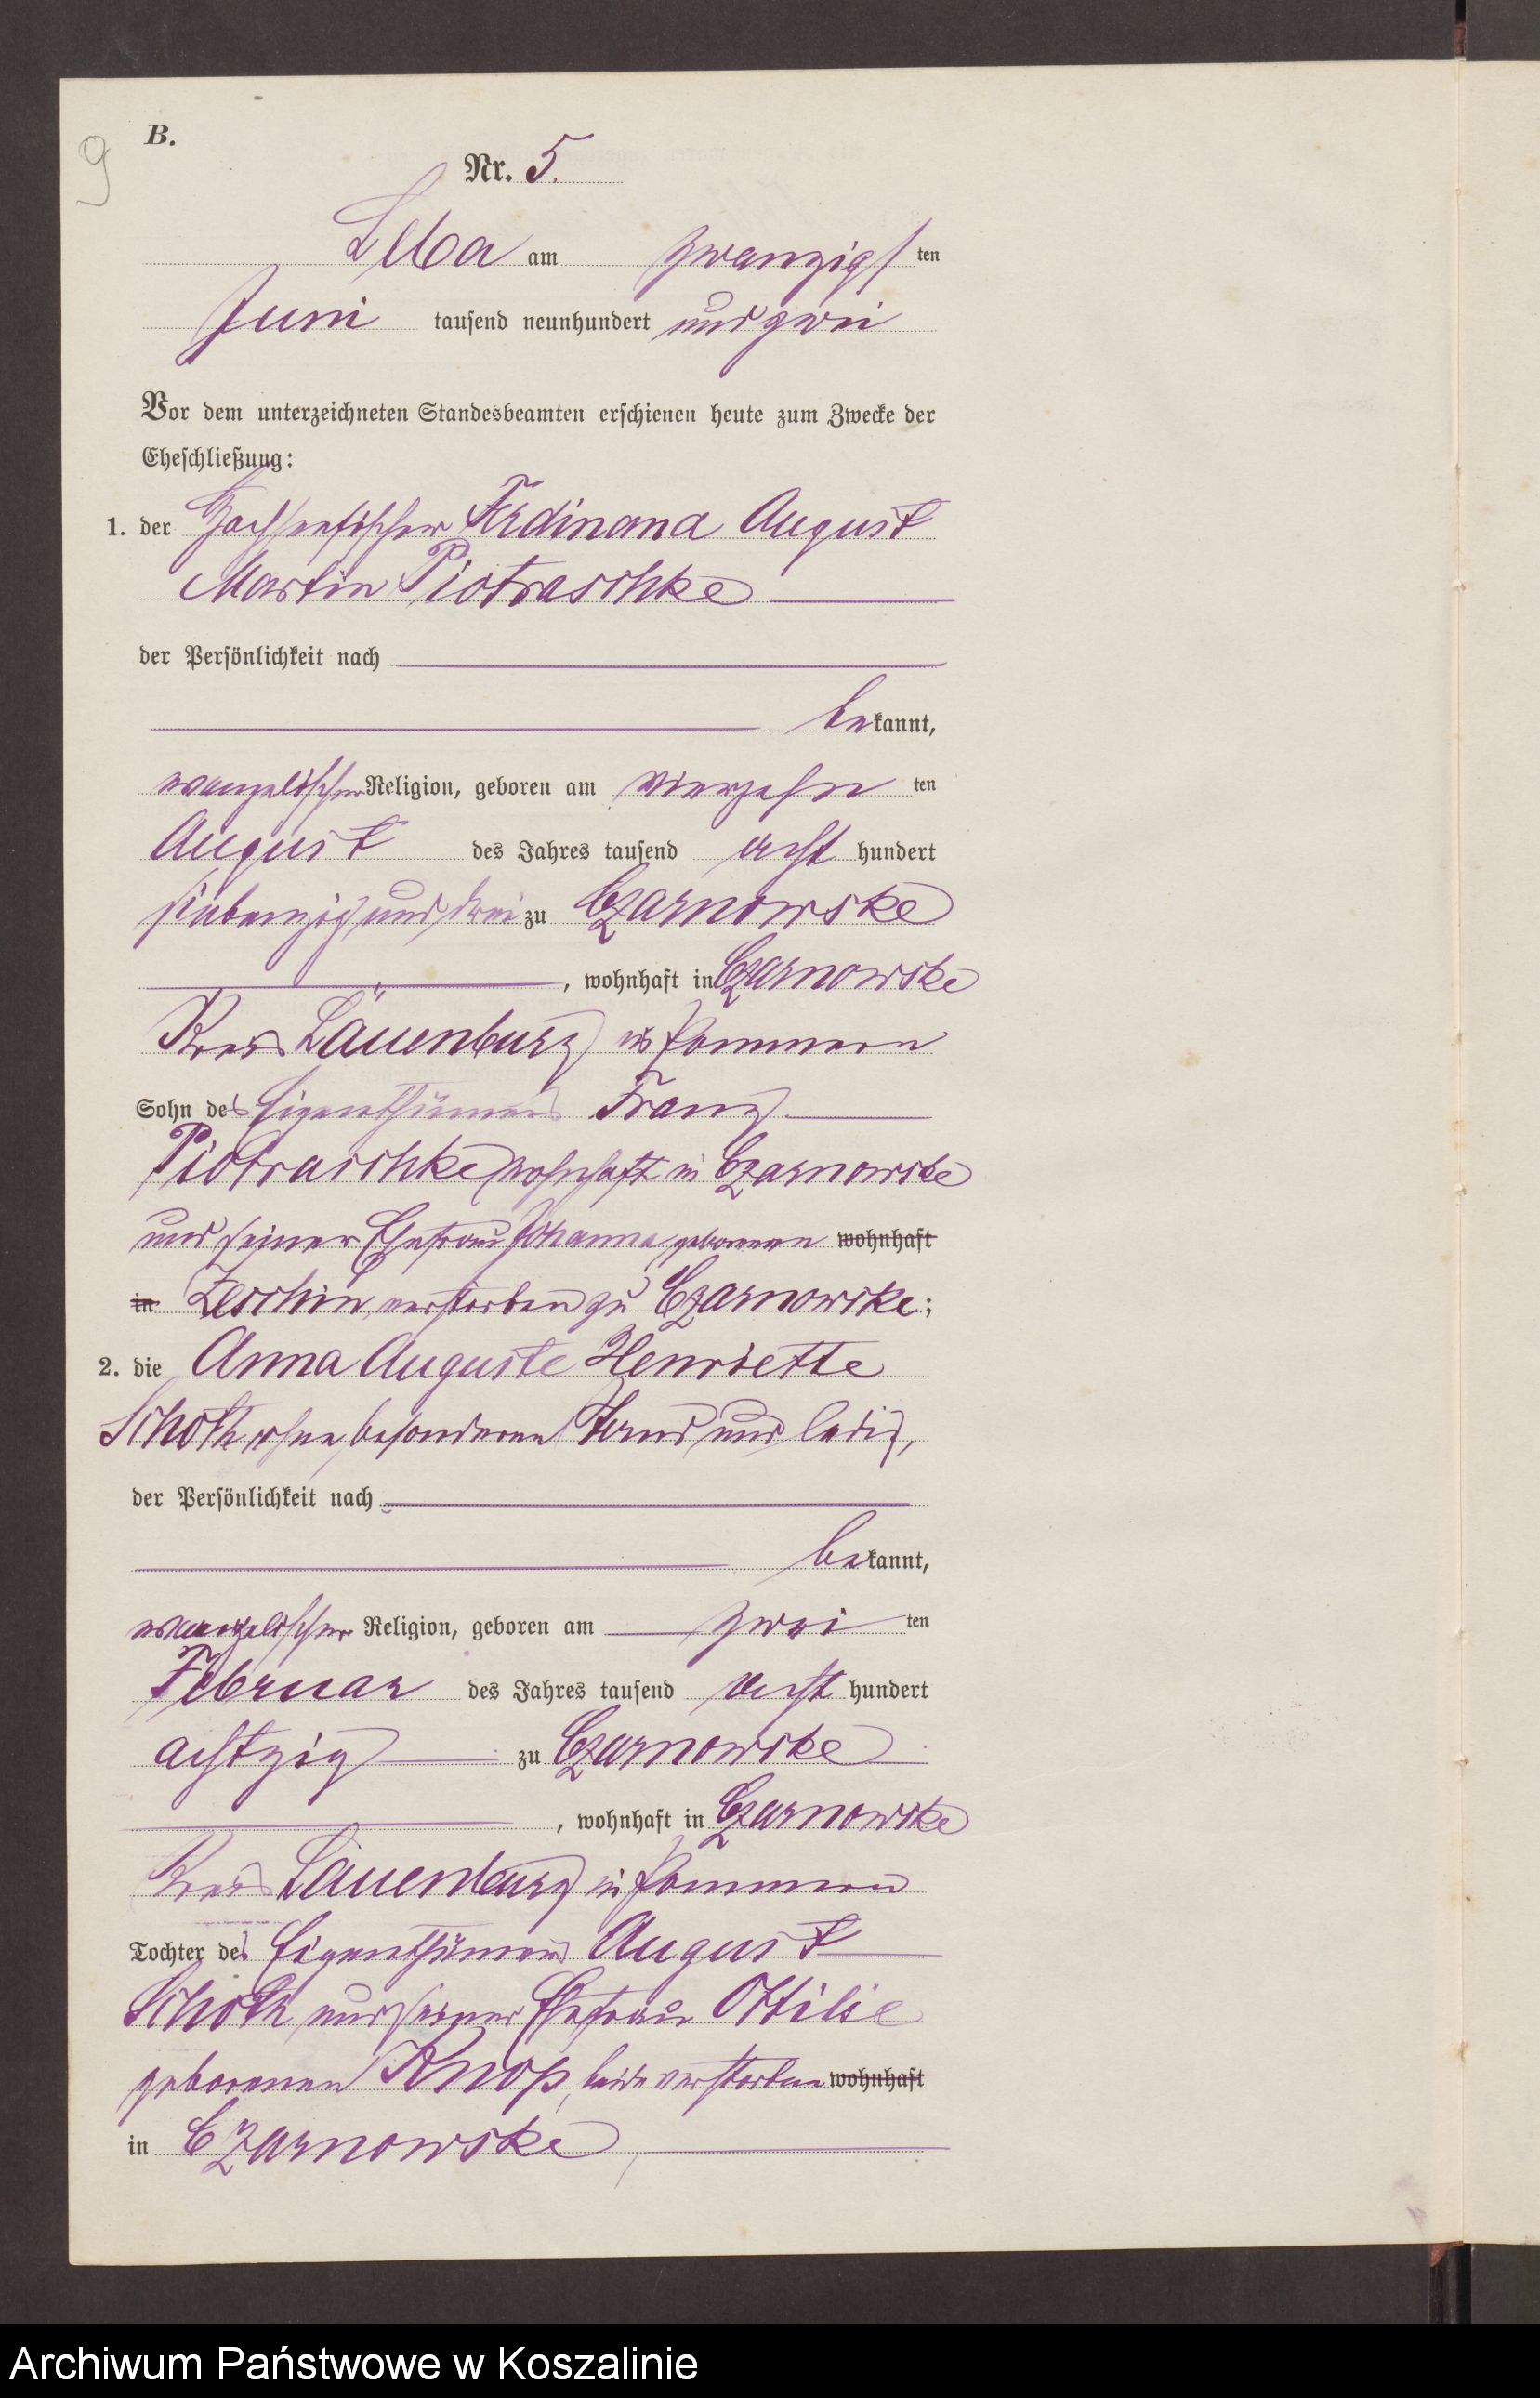 9
B.
Nr. 5.
Leba am zwanzigsten
Juni tausend neunhundert und zwei
Vor dem unterzeichneten Standesbeamten erschienen heute zum Zwecke der
Eheschließung:
1. der Ferdinand August
Martin Piotraschke
der Persönlichkeit nach
bekannt,
evangelischer Religion, geboren am vierzehnten
August des Jahres tausend acht hundert
siebenzig und drei zu Czarnowske
, wohnhaft in Czarnowske
Kreis Lauenburg in Pommern
Sohn des Eigenthümers Franz
Piotraschke wohnhaft in Czarnowske
und seiner Ehefrau Johanna geborenen wohnhaft
in Zeschin, verstorben zu Czarnowske;
2. die Anna Auguste Henriette
Schoth, ohne besonderen Stand und ledig,
der Persönlichkeit nach
bekannt,
evangelischer Religion, geboren am zweiten
Februar des Jahres tausend acht hundert
achtzig zu Czarnowske
, wohnhaft in Czarnowske
Kreis Lauenburg in Pommern
Tochter des Eigenthümers August
Schoth und seiner Ehefrau Ottilie
geborenen Knop, beide verstorben wohnhaft
in Czarnowske,
Archiwum Państwowe w Koszalinie